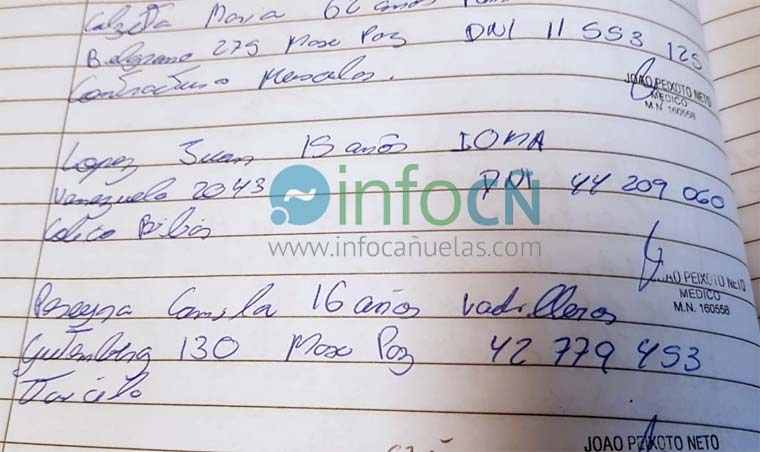 Maria 62 años
Belgrano 275 Max Paz DNI 11 553 125
Contractura
JOAO PEIXOTO NETO
MEDICO
M.N. 160558
Lopez Juan 15 años IOMA
Venezuela 2043 DNI 44 209 060
Colico Biliar
infoCN
www.infocañuelas.com
JOAO PEIXOTO NETO
MEDICO
M.N. 160558
Pereyra Camila 16 años Vadilleros
Gutenberg 130 Max Paz 42 779 453
JOAO PEIXOTO NETO